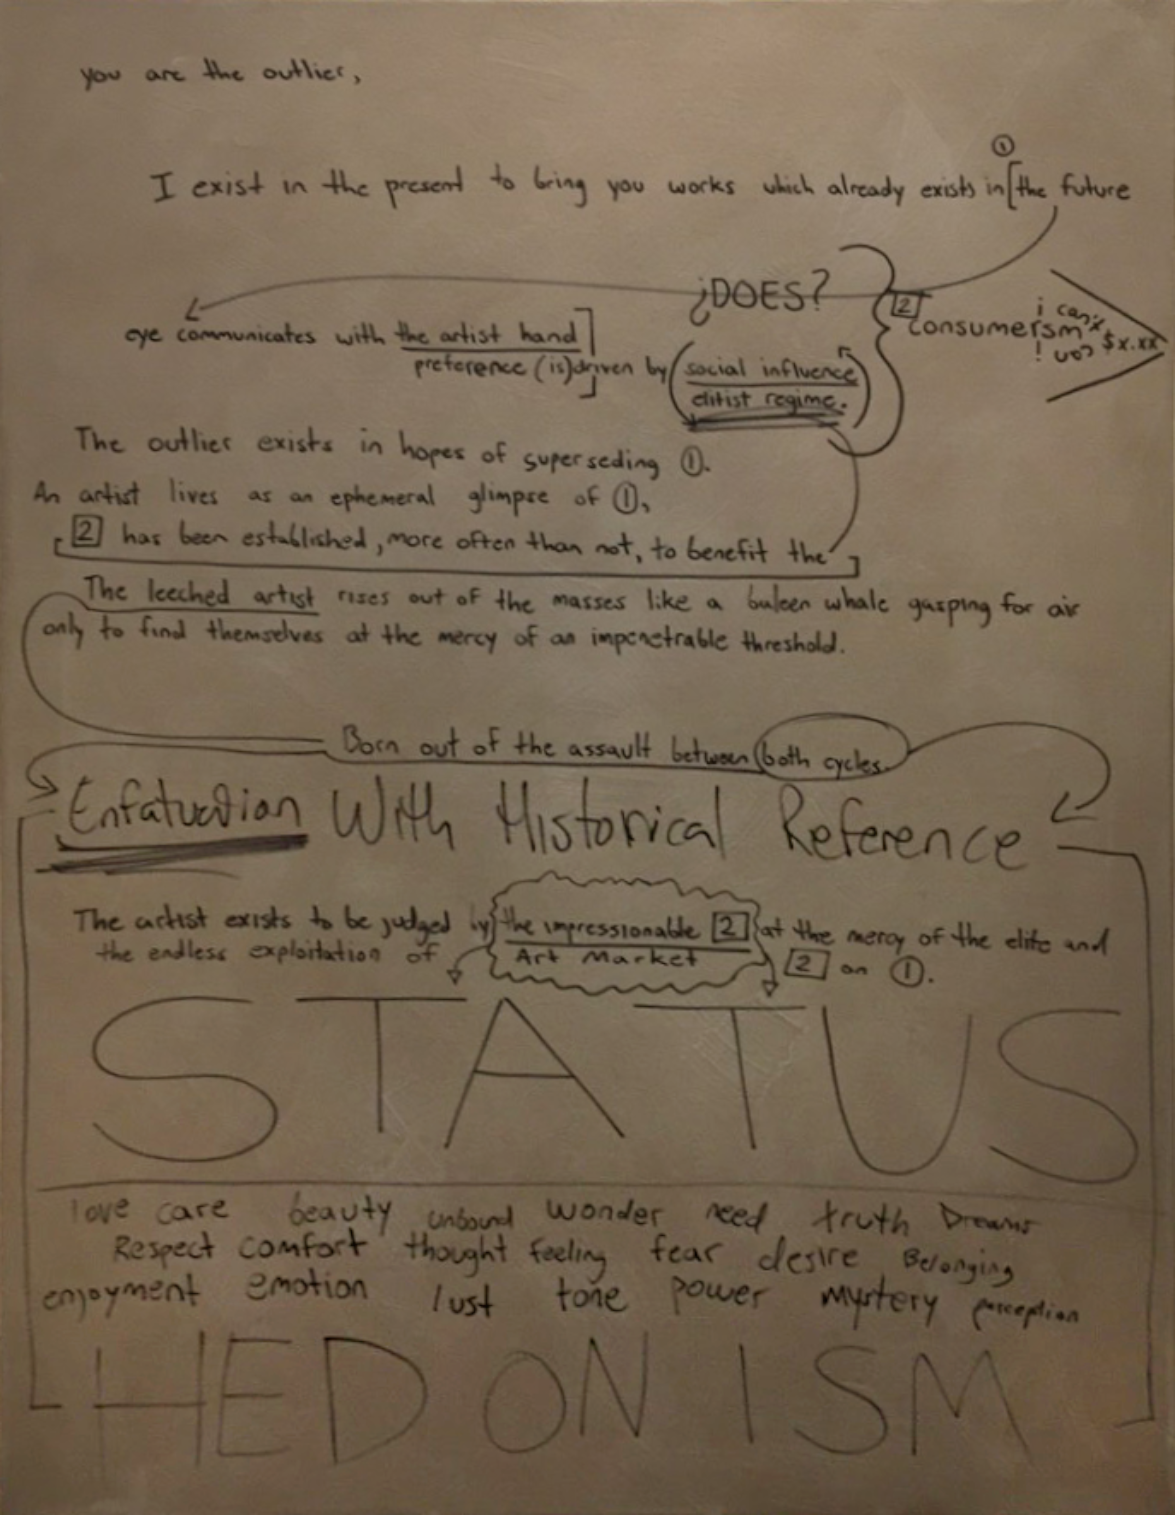 you are the outlier,
①
I exist in the present to bring you works which already exists in [the future
¿DOES?
2
consumerism
i can't
$x.xx
! can
eye communicates with the artist hand]
preference (is) driven by (social influence
elitist regime.)
The outlier exists in hopes of superseding ①.
An artist lives as an ephemeral glimpse of ①,
[2 has been established, more often than not, to benefit the]
The leeched artist rises out of the masses like a buleen whale gasping for air
only to find themselves at the mercy of an impenetrable threshold.
Born out of the assault between both cycles.
Enfatuation With Historical Reference
The artist exists to be judged by the impressionable 2 at the mercy of the elite and
the endless exploitation of Art Market 2 on ①.
STATUS
love care beauty unbound wonder need truth Dreams
Respect comfort thought feeling fear desire Belonging
enjoyment emotion lust tone power mystery perception
HEDONISM